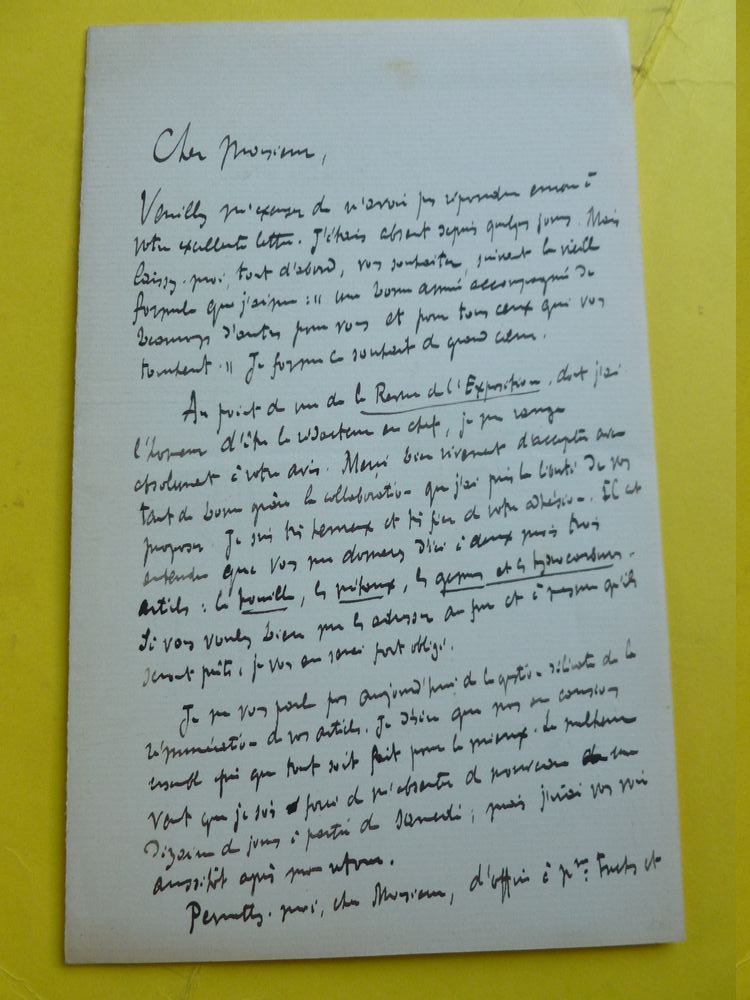 Cher Monsieur,
Veuillez m'excuser de n'avoir pas répondu encore à
votre excellente lettre. J'étais absent depuis quelques jours. Mais
laissez-moi, tout d'abord, vous souhaiter, suivant la vieille
formule que j'aime : " une bonne année accompagnée de
beaucoup d'autres pour vous et pour tous ceux qui vous
touchent. " Je forme ce souhait de grand cœur.
Au point de vue de la Revue de l'Exposition, dont j'ai
l'honneur d'être le rédacteur en chef, je me range
absolument à votre avis. Merci bien vivement d'accepter avec
tant de bonne grâce la collaboration que j'ai pris la liberté de vous
proposer. Je suis très heureux et très fier de votre adhésion. Il est
entendu que vous me donnerez d'ici à deux mois trois
articles : la houille, les métaux, les gemmes et les hydrocarbures.
Si vous voulez bien me les adresser au fur et à mesure qu'ils
seront prêts, je vous en serai fort obligé.
Je ne vous parle pas aujourd'hui de la question délicate de la
rémunération de vos articles. Je désire que nous en causions
ensemble afin que tout soit fait pour le mieux. Le malheur
veut que je sois forcé de m'absenter de nouveau une
dizaine de jours à partir de Samedi ; mais j'irai vous voir
aussitôt après mon retour.
Permettez-moi, cher Monsieur, d'offrir à et